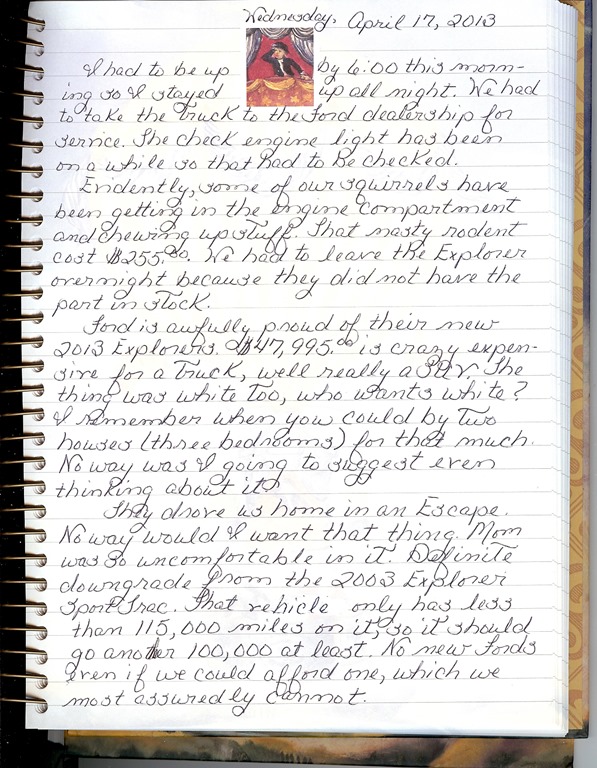 Wednesday, April 17, 2013
I had to be up by 6:00 this morn-
ing so I stayed up all night. We had
to take the truck to the Ford dealership for
service. The check engine light has been
on a while so that had to be checked.
Evidently, some of our squirrels have
been getting in the engine compartment
and chewing up stuff. That nasty rodent
cost $255.00. We had to leave the Explorer
overnight because they did not have the
part in stock.
Ford is awfully proud of their new
2013 Explorers. $47,995.00 is crazy expen-
sive for a truck, well really a SUV. The
thing was white too, who wants white?
I remember when you could by two
houses (three bedrooms) for that much.
No way was I going to suggest even
thinking about it.
They drove us home in an Escape.
No way would I want that thing. Mom
was so uncomfortable in it. Definite
downgrade from the 2003 Explorer
Sport Trac. That vehicle only has less
than 115,000 miles on it, so it should
go another 100,000 at least. No new Fords
even if we could afford one, which we
most assuredly cannot.